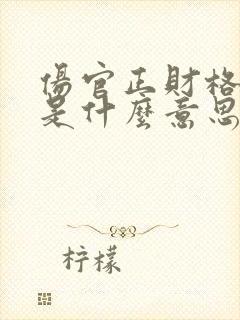 傷官正財格
是什麼意思
柠檬